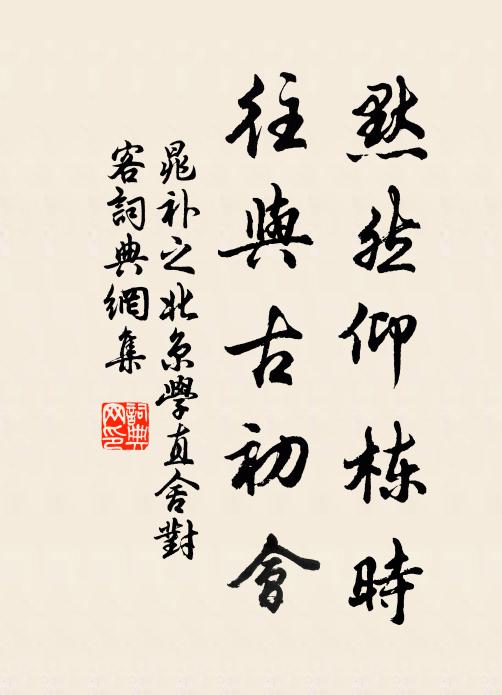 默然仰棟時
往與古初會
晁補之北京學直舍對
客詞典網集
詞典网印